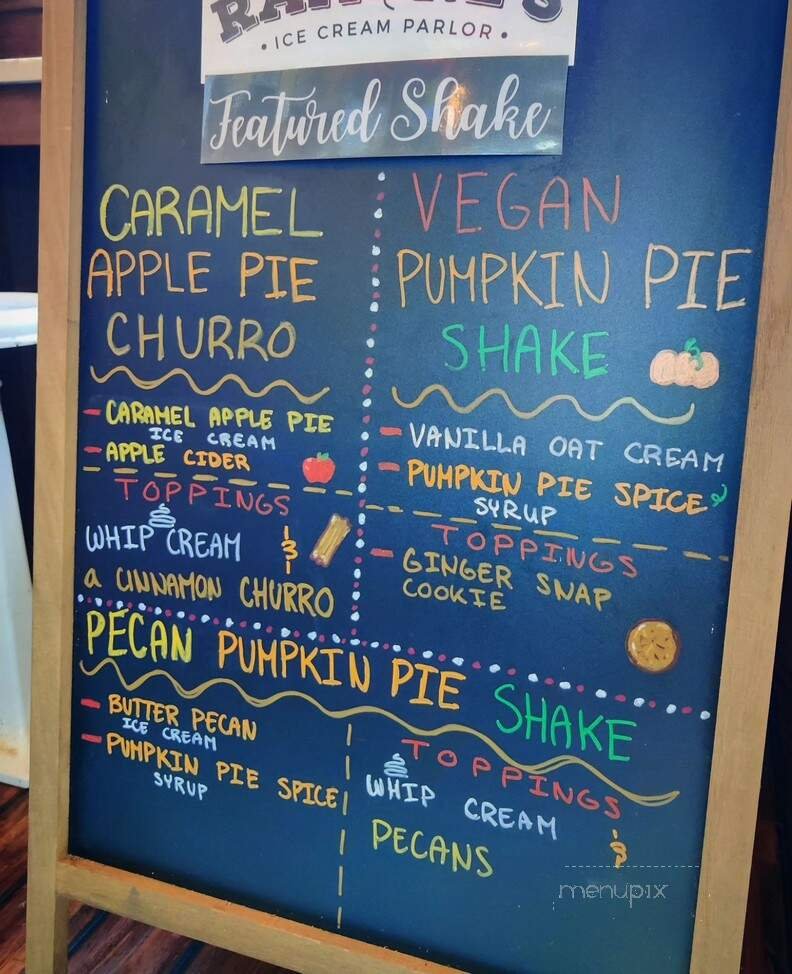 • ICE CREAM PARLOR •
Featured Shake
CARAMEL
APPLE PIE
CHURRO
- CARAMEL APPLE PIE
ICE CREAM
- APPLE CIDER
TOPPINGS
WHIP CREAM &
a CINNAMON CHURRO
VEGAN
PUMPKIN PIE
SHAKE
- VANILLA OAT CREAM
- PUMPKIN PIE SPICE
SYRUP
TOPPINGS
- GINGER SNAP
COOKIE
PECAN PUMPKIN PIE SHAKE
- BUTTER PECAN
ICE CREAM
- PUMPKIN PIE SPICE
SYRUP
TOPPINGS
WHIP CREAM &
PECANS
menupix